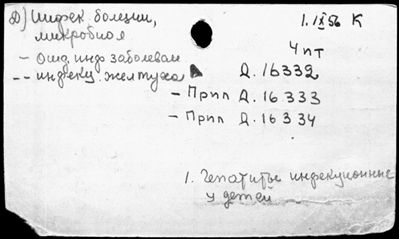 Д) Инфек. болезни, 1.IX 56 К
микробиол
4 пт
– инф заболевам
-- инфекц. желтуха Д. 16332
– Прип Д. 16333
– Прип Д. 16334
1. Гепатиты инфекционные
у детей